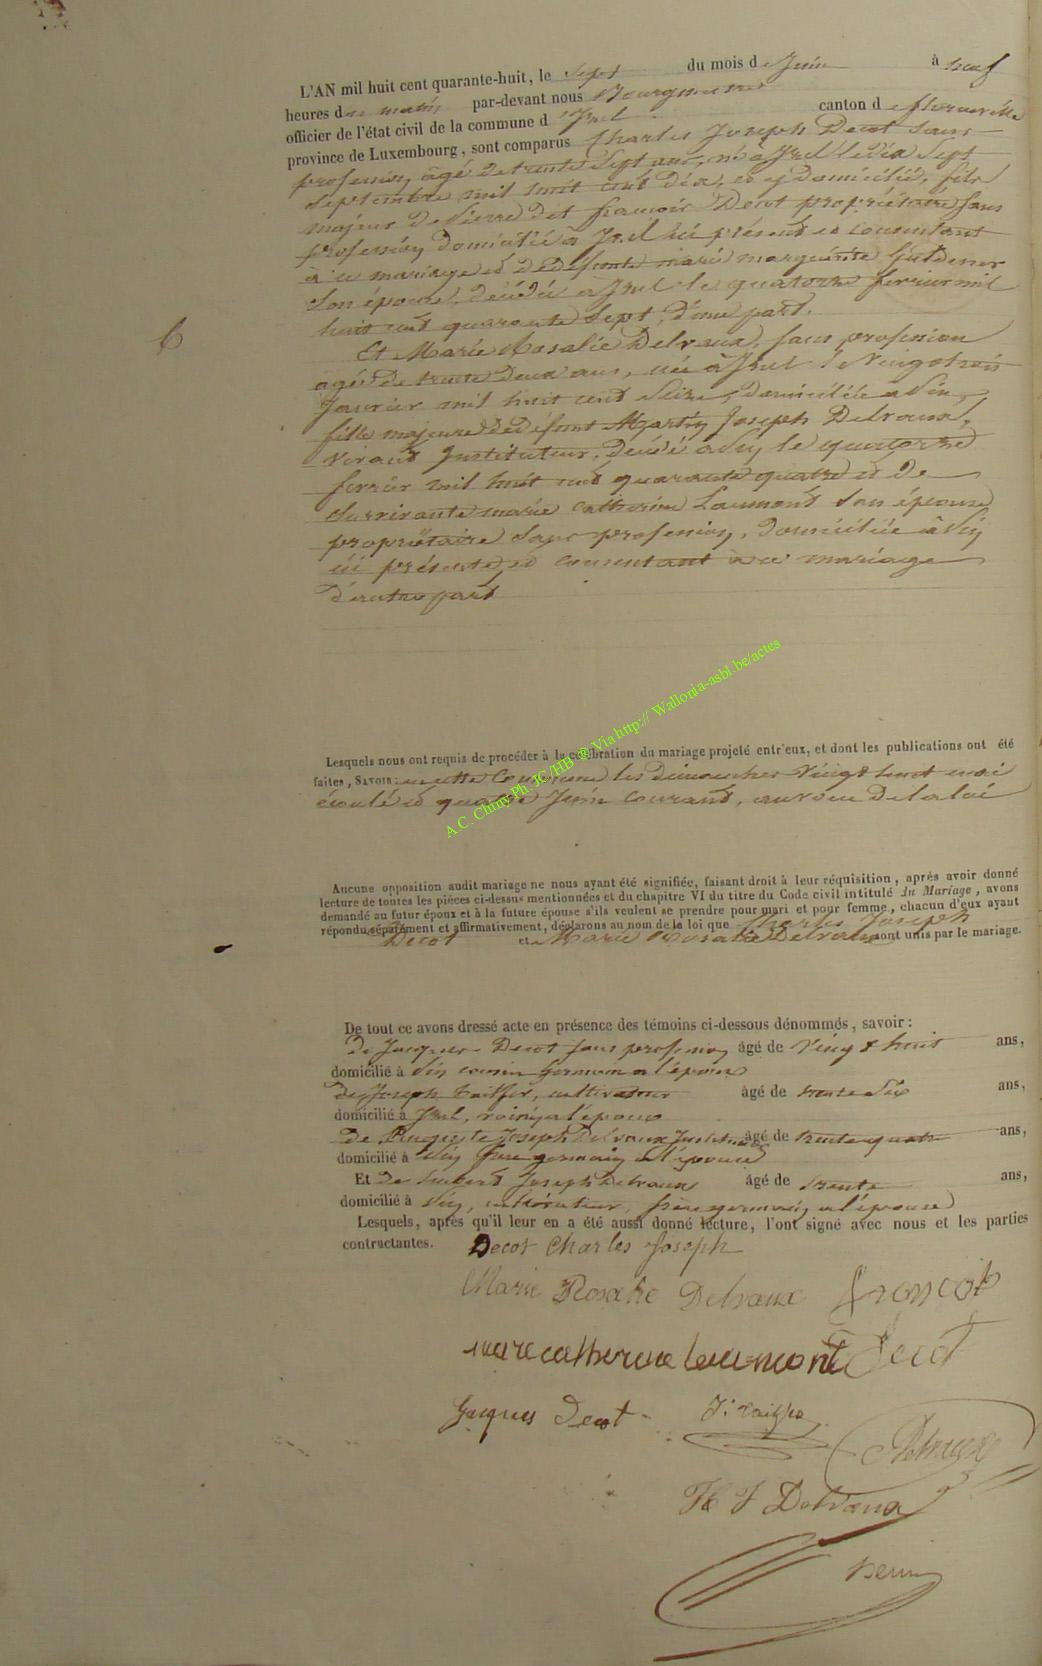 L'AN mil huit cent quarante-huit, le sept du mois de Juin à neuf
heures du matin par-devant nous Bourgmestre
officier de l'état civil de la commune d'Izel canton de florenville
province de Luxembourg, sont comparus Charles Joseph Decot sans
profession, âgé de trente sept ans, né à Izel le dix sept
septembre mil huit cent dix, et y domicilié, fils
majeur de Pierre dit françois Decot propriétaire sans
profession domicilié à Izel ici présent et consentant
à ce mariage et de défunte marie marguerite
son épouse, décédée à Izel le quatorze fevrier mil
huit cent quarante sept, d'une part.
6
Et Marie Rosalie Delvaux, sans profession
agée de trente deux ans, née à Izel le Vingt trois
Janvier mil huit cent seize, domiciliée a
fille majeure de défunt Martin Joseph Delvaux,
vivant Instituteur, décédé a le quatorze
fevrier mil huit cent quarante quatre et de
survivante marie catherine Laumont son épouse
propriétaire sans profession, domiciliée à
ici présente et consentant à ce mariage
d'autre part
Lesquels nous ont requis de procéder à la célébration du mariage projeté entr'eux, et dont les publications ont été
faites, Savoir: en cette Commune les dimanches Vingt huit mai
écoulé et quatre Juin courant, au vœu de la loi
Aucune opposition audit mariage ne nous ayant été signifiée, faisant droit à leur réquisition, après avoir donné
lecture de toutes les pièces ci-dessus mentionnées et du chapitre VI du titre du Code civil intitulé du Mariage, avons
demandé au futur époux et à la future épouse s'ils veulent se prendre pour mari et pour femme, chacun d'eux ayant
répondu séparément et affirmativement, déclarons au nom de la loi que Charles Joseph
Decot et Marie Rosalie Delvaux sont unis par le mariage.
De tout ce avons dressé acte en présence des témoins ci-dessous dénommés, savoir:
de Jacques Decot sans profession âgé de Vingt huit ans,
domicilié à cousin Germain a l'époux
de Joseph cultivateur âgé de trente six ans,
domicilié à Izel, voisin a l'époux
de Auguste Joseph Delvaux Instituteur âgé de trente quatre ans,
domicilié à frère germain a l'épouse
Et de Joseph Delvaux âgé de trente ans,
domicilié à cultivateur, frère germain a l'épouse
Lesquels, après qu'il leur en a été aussi donné lecture, l'ont signé avec nous et les parties
contractantes. Decot Charles Joseph
Marie Rosalie Delvaux françois
marie catherine laumont Decot
Jacques Decot
H J Delvaux
A.C. Chiny-Ph. JC/HB ® Via http:// Wallonia-asbl.be/actes